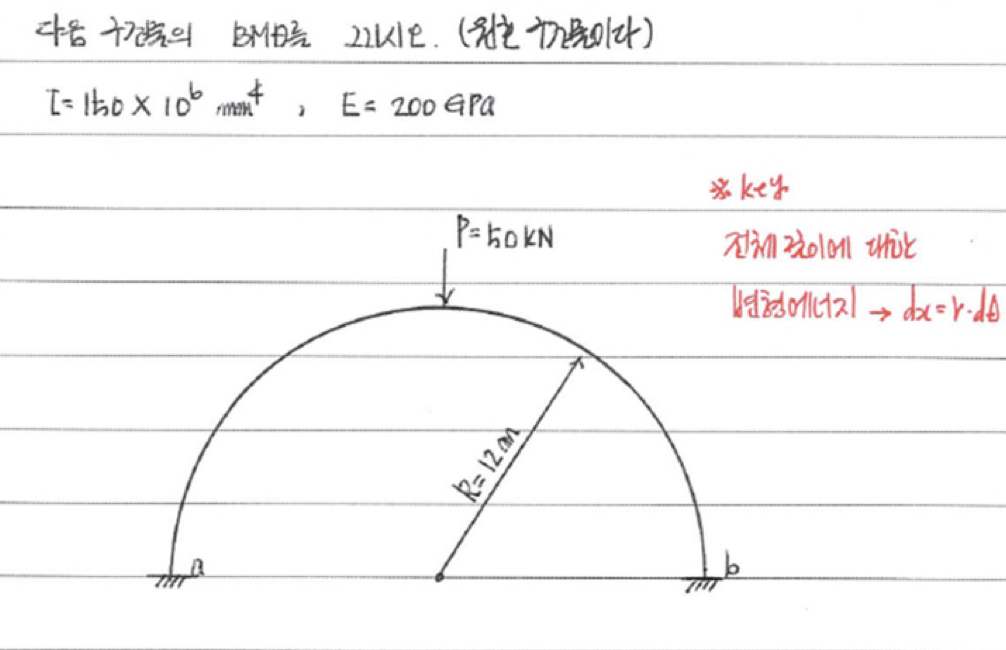 다음 구조물의 BMD를 그리시오. (원호 구조물이다)
I = 150 × 10⁶ mm⁴ , E = 200 GPa
※ key
전체 길이에 대한
변형에너지 → dx = r·dθ
P = 50 kN
R = 12 m
a
b